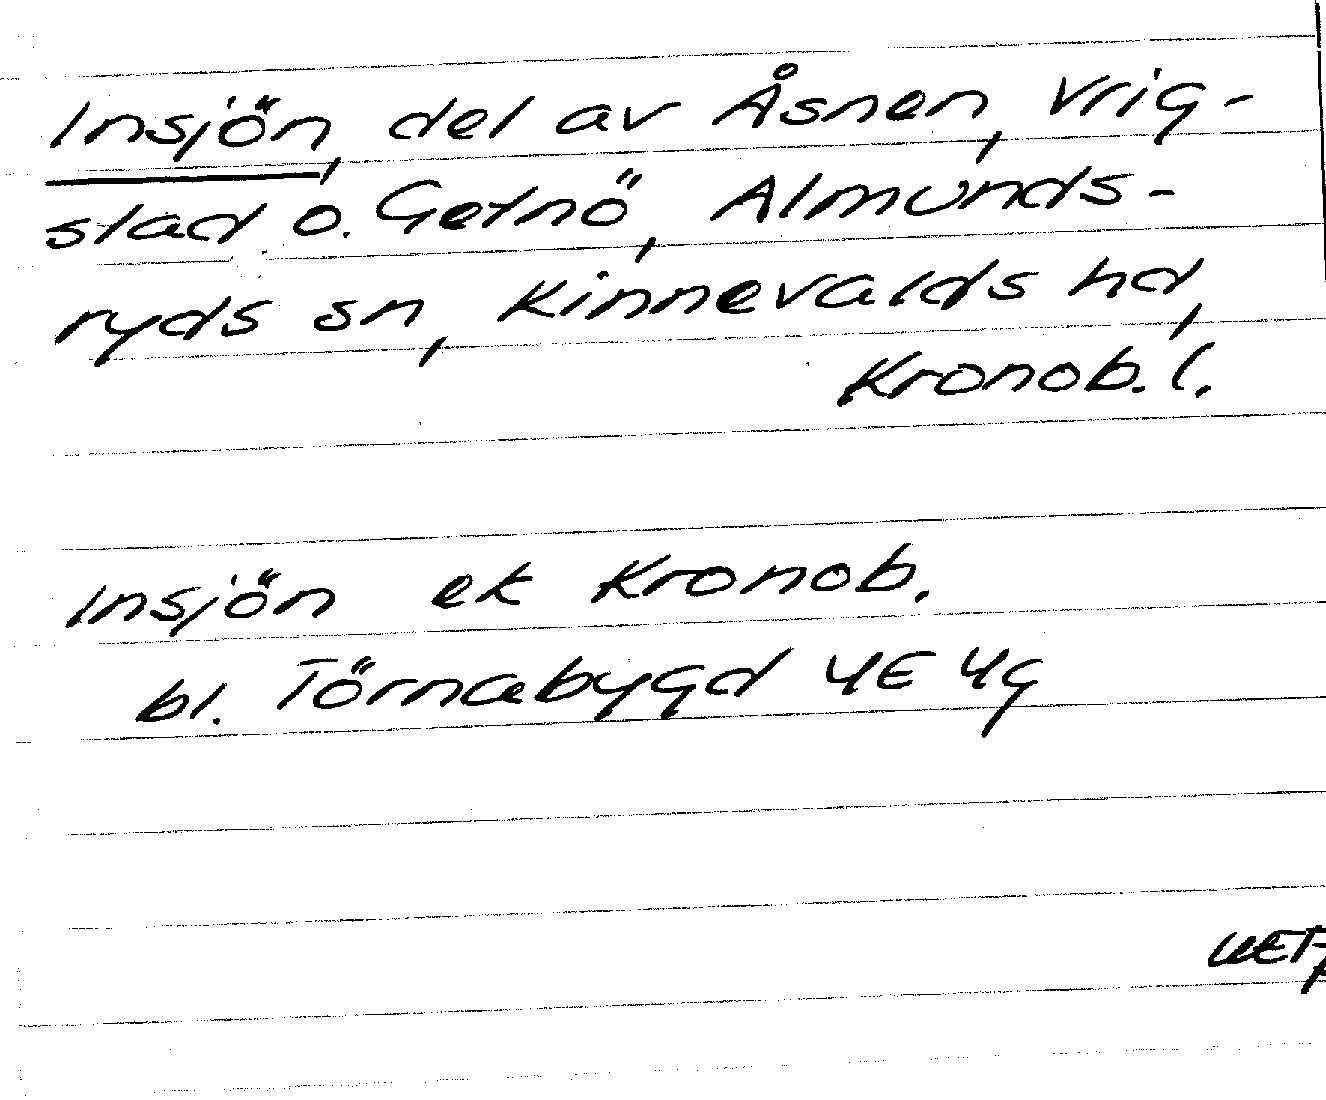 Insjön, del av Åsnen, Vrig-
stad o. Getnö, Almunds-
ryds sn, Kinnevalds hd,
Kronob. l.
Insjön ek Kronob.
bl. Törnabygd 4E 4g